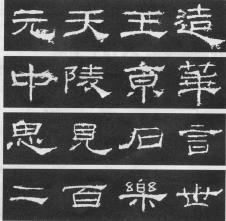 元天王造
中陵京華
思見石言
二百樂世